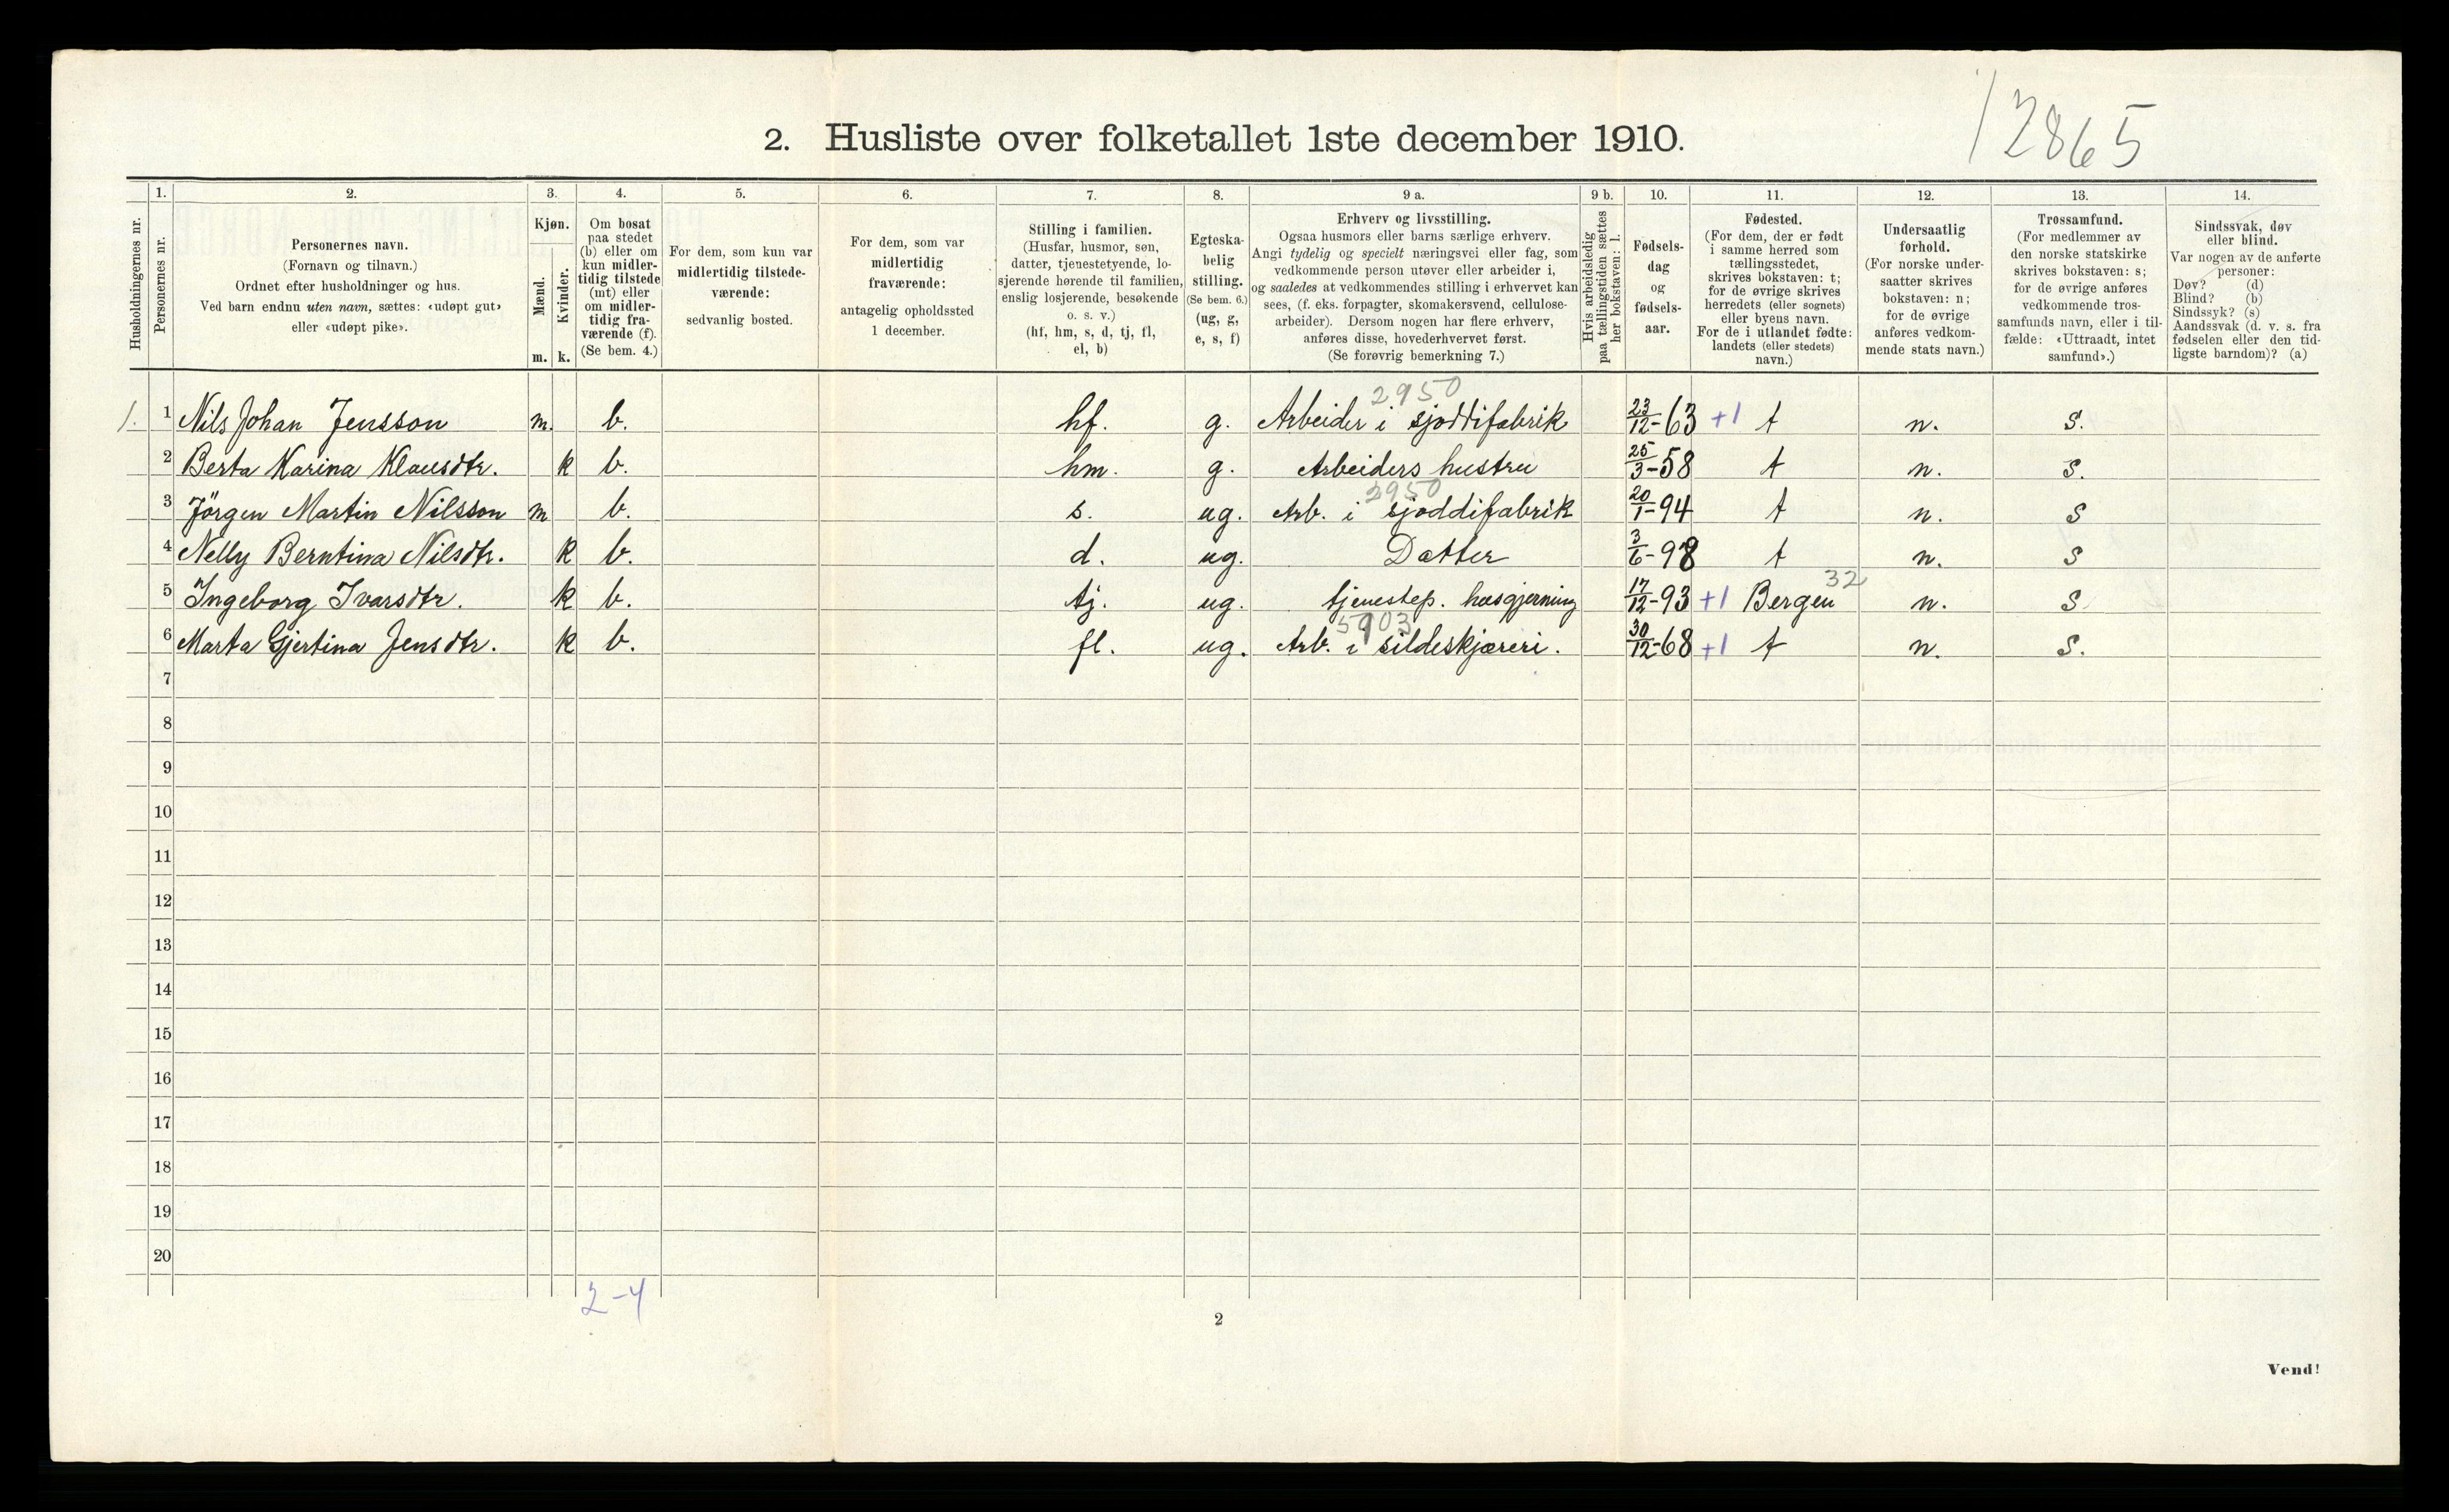 12865
2. Husliste over folketallet 1ste december 1910.
Husholdningernes nr.
1.
Personernes nr.
2.
Personernes navn.
(Fornavn og tilnavn.)
Ordnet efter husholdninger og hus.
Ved barn endnu uten navn, sættes: «udøpt gut»
eller «udøpt pike».
3.
Kjøn.
Mænd.
Kvinder.
m. k.
4.
Om bosat
paa stedet
(b) eller om
kun midler-
tidig tilstede
(mt) eller
om midler-
tidig fra-
værende (f).
(Se bem. 4.)
5.
For dem, som kun var
midlertidig tilstede-
værende:
sedvanlig bosted.
6.
For dem, som var
midlertidig
fraværende:
antagelig opholdssted
1 december.
7.
Stilling i familien.
(Husfar, husmor, søn,
datter, tjenestetyende, lo-
sjerende hørende til familien,
enslig losjerende, besøkende
o. s. v.)
(hf, hm, s, d, tj, fl,
el, b)
8.
Egteska-
belig
stilling.
(Se bem. 6.)
(ug, g,
e, s, f)
9 a.
Erhverv og livsstilling.
Ogsaa husmors eller barns særlige erhverv.
Angi tydelig og specielt næringsvei eller fag, som
vedkommende person utøver eller arbeider i,
og saaledes at vedkommendes stilling i erhvervet kan
sees, (f. eks. forpagter, skomakersvend, cellulose-
arbeider). Dersom nogen har flere erhverv,
anføres disse, hovederhvervet først.
(Se forøvrig bemerkning 7.)
9 b.
Hvis arbeidsledig
paa tællingstiden sættes
her bokstaven: l.
10.
Fødsels-
dag
og
fødsels-
aar.
11.
Fødested.
(For dem, der er født
i samme herred som
tællingsstedet,
skrives bokstaven: t;
for de øvrige skrives
herredets (eller sognets)
eller byens navn.
For de i utlandet fødte:
landets (eller stedets)
navn.)
12.
Undersaatlig
forhold.
(For norske under-
saatter skrives
bokstaven: n;
for de øvrige
anføres vedkom-
mende stats navn.)
13.
Trossamfund.
(For medlemmer av
den norske statskirke
skrives bokstaven: s;
for de øvrige anføres
vedkommende tros-
samfunds navn, eller i til-
fælde: «Uttraadt, intet
samfund».)
14.
Sindssvak, døv
eller blind.
Var nogen av de anførte
personer:
Døv? (d)
Blind? (b)
Sindssyk? (s)
Aandssvak (d. v. s. fra
fødselen eller den tid-
ligste barndom)? (a)
2950
1. 1 Nils Johan Jensson m. b. hf. g. Arbeider i sjoddifabrik 23/12-63 +1 t n. s.
2 Berta Karina Klausdtr. k b. hm. g. Arbeiders hustru 25/3-58 t n. s.
2950
3 Jörgen Martin Nilsson m b. s. ug. Arb. i sjoddifabrik 20/1-94 t n. s
4 Nelly Berntina Nilsdtr. k b. d. ug. Datter 3/6-98 t n. s
32
5 Ingeborg Ivarsdtr. k b. tj. ug. tjenestep. husgjerning 17/12-93 +1 Bergen n. s
5903
6 Marta Gjertina Jensdtr. k b. fl. ug. Arb. i sildeskjæreri. 30/12-68 +1 t n. s.
7
8
9
10
11
12
13
14
15
16
17
18
19
20
2-4
2
Vend!